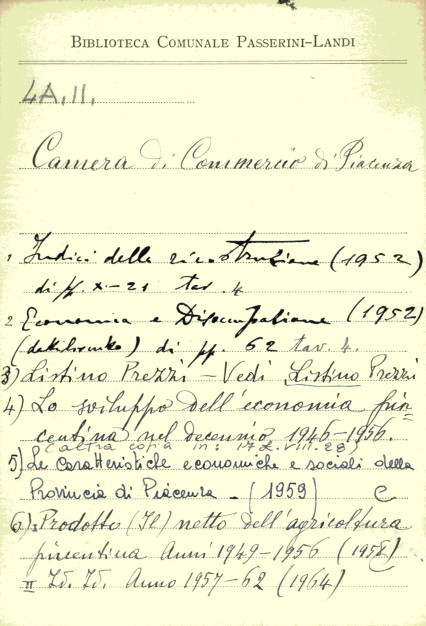 BIBLIOTECA COMUNALE PASSERINI–LANDI
4A.II.
Camera di Commercio di Piacenza
1 Indici della ricostruzione (1952)
di pp. X–21 tav. 4
2 Economia e Disoccupazione (1952)
(dattiloscritto) di pp. 62 tav. 4.
3) Listino Prezzi – Vedi Listino Prezzi
4) Lo sviluppo dell'economia pia=
centina nel decennio 1946–1956.
(altra copia in: 17 VIII.28)
5) Le caratteristiche economiche e sociali della
Provincia di Piacenza – (1959) C
6) I Prodotto (Il) netto dell'agricoltura
piacentina Anni 1949–1956 (1958)
II Id. Id. Anno 1957–62 (1964)